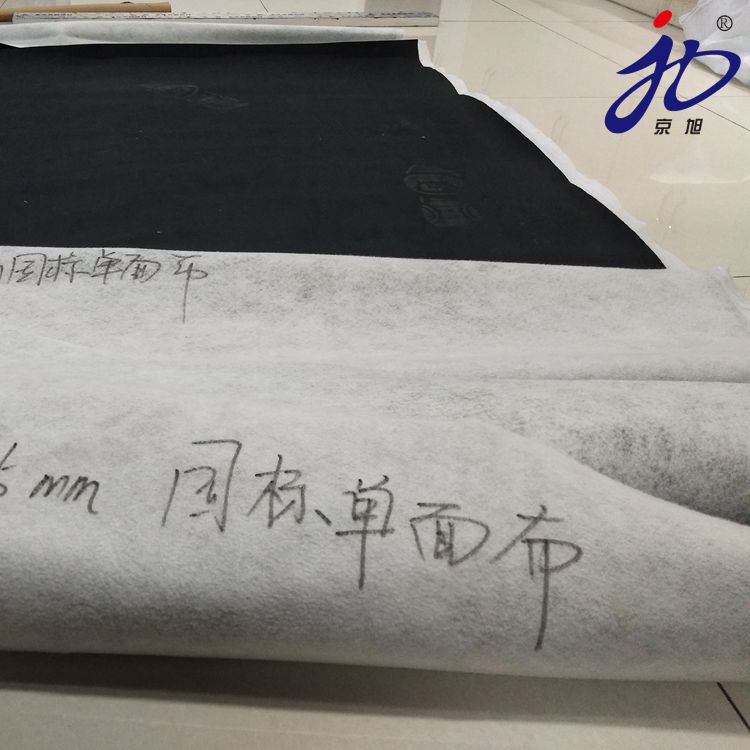 ®
京旭
国标单面布
mm 国标单面布